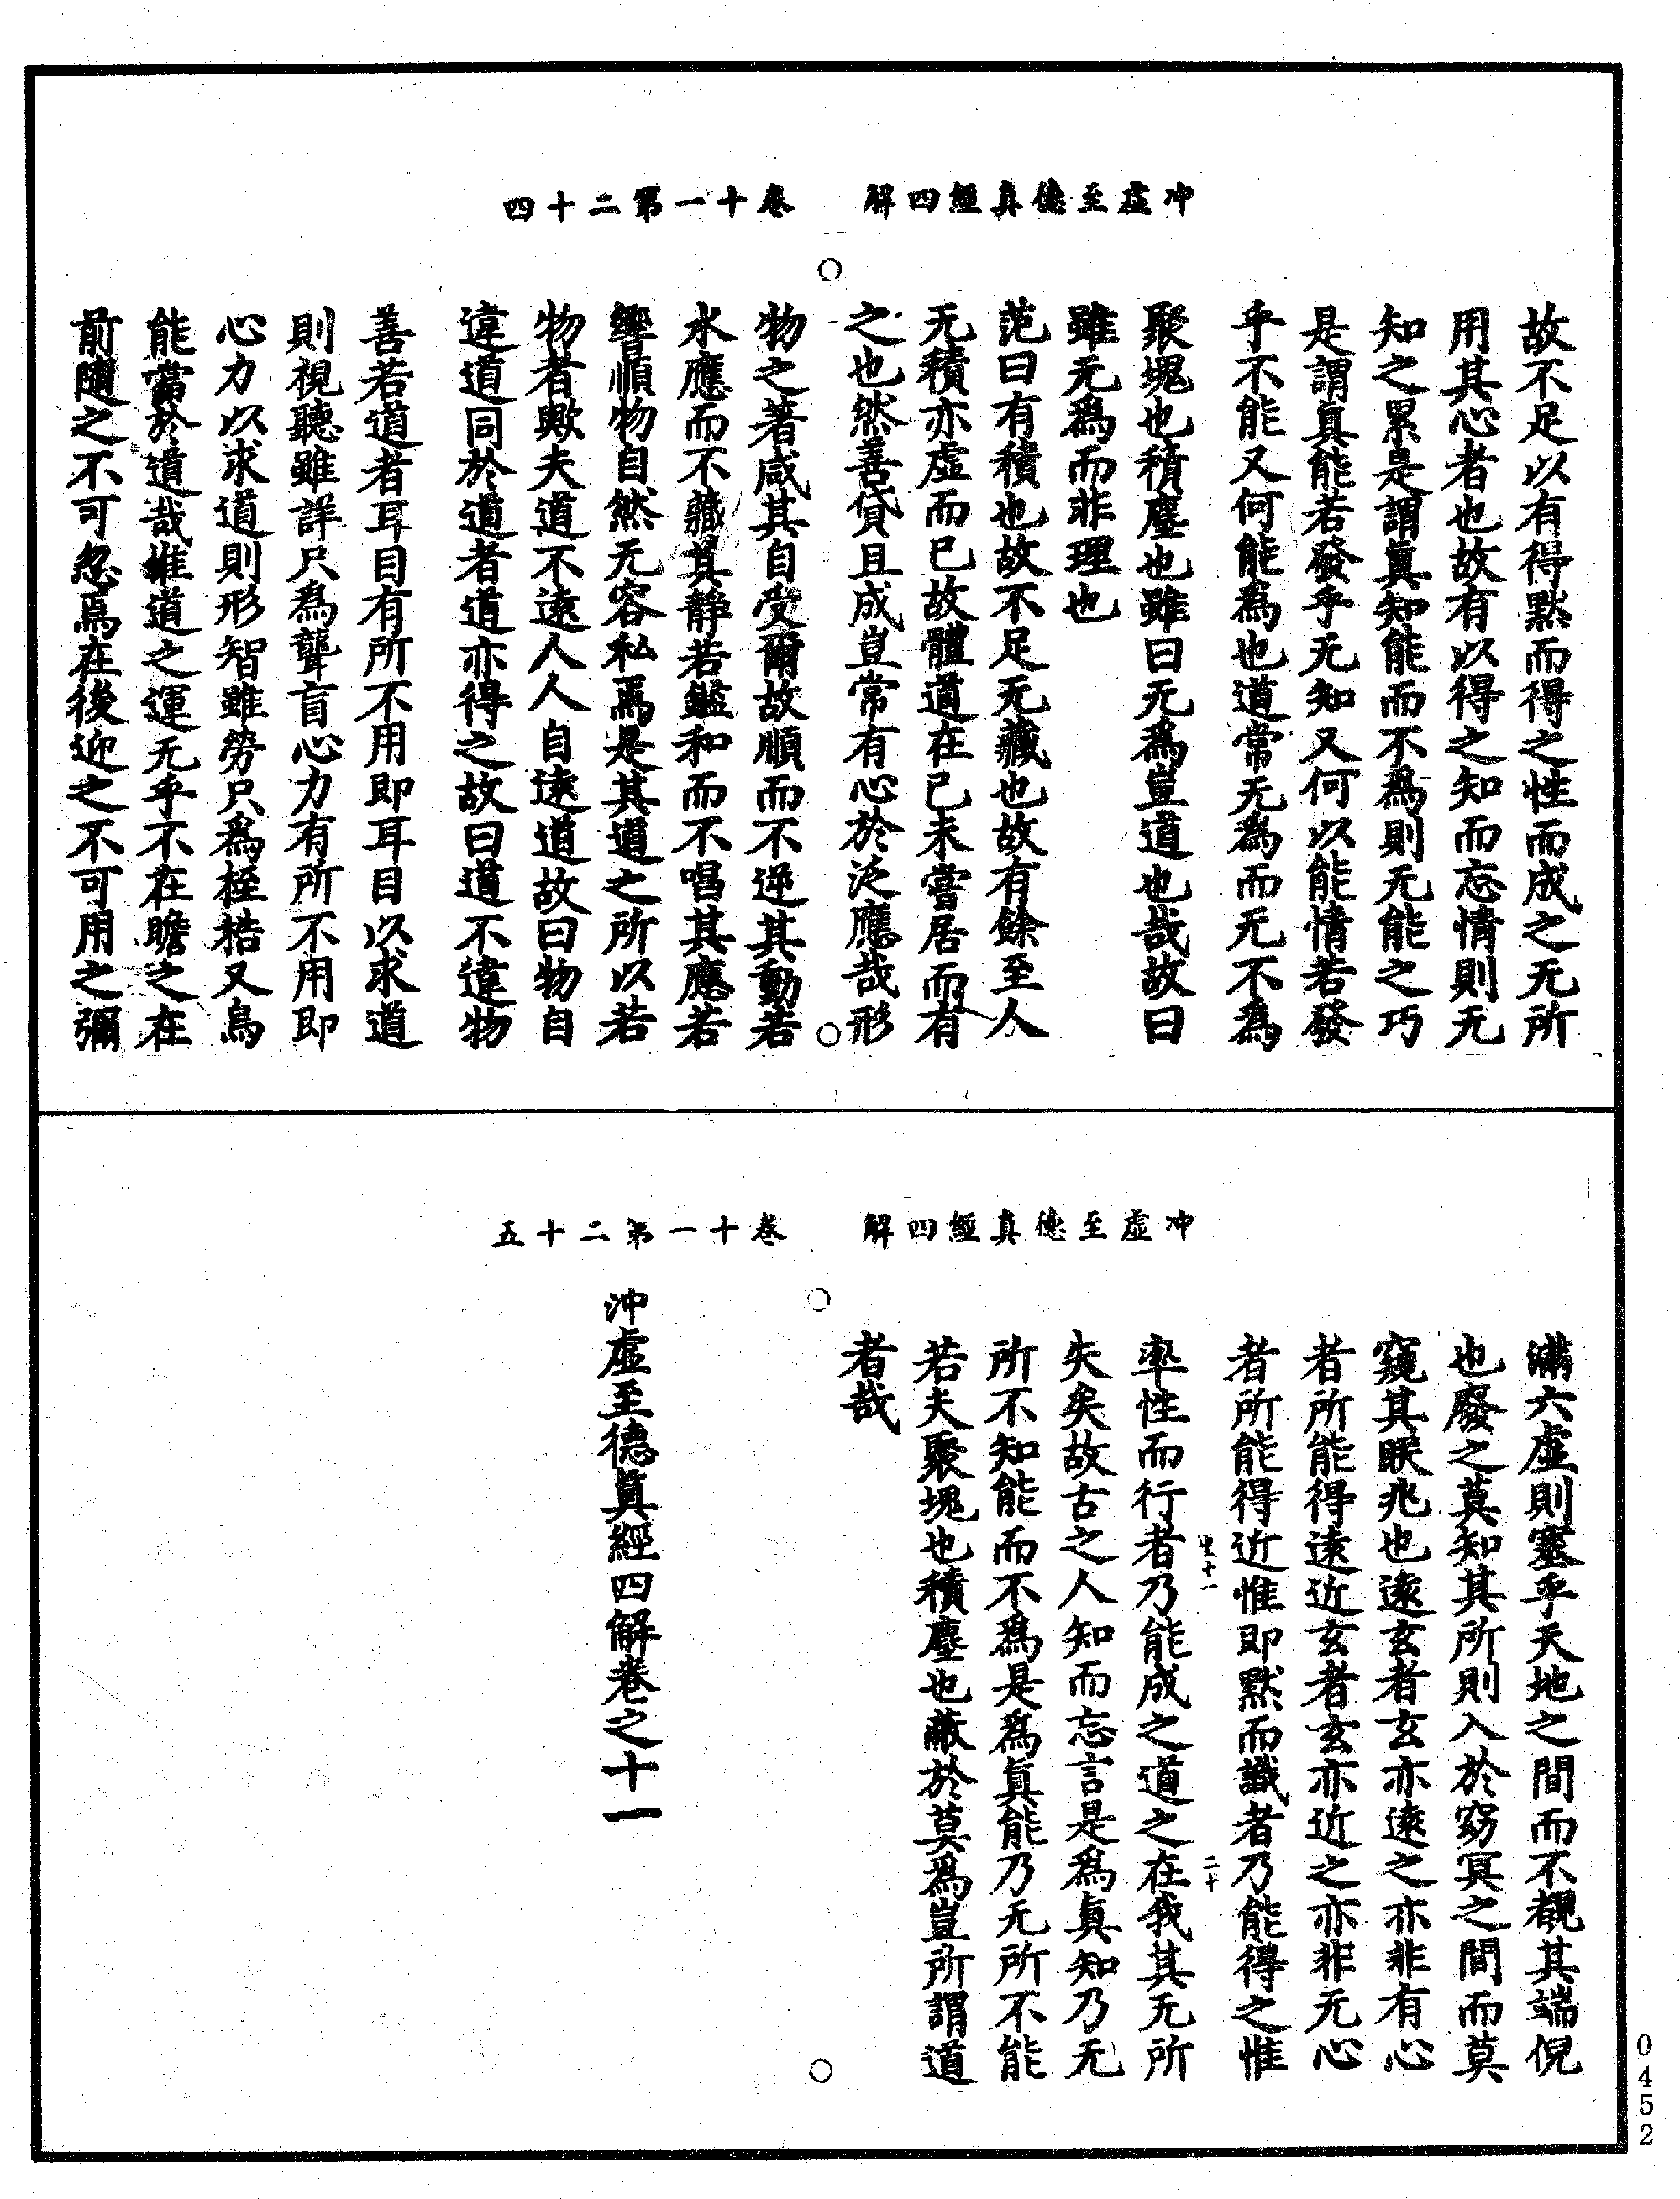 冲虛至德真經四解　卷十一第二十四
故不足以有得默而得之性而成之无所
用其心者也故有以得之知而忘情則无
知之累是謂眞知能而不為則无能之巧
是謂真能若發乎无知又何以能情若發
乎不能又何能為也道常无為而无不為
聚塊也積塵也雖曰无為豈道也哉故曰
雖无為而非理也
范曰有積也故不足无藏也故有餘至人
无積亦虛而已故體道在已未嘗居而有
之也然善貸且成豈常有心於泛應哉形
物之著咸其自受爾故順而不逆其動若
水應而不藏其靜若鑑和而不唱其應若
響順物自然无容私焉是其道之所以若
物者歟夫道不遠人人自遠道故曰物自
違道同於道者道亦得之故曰道不違物
善若道者耳目有所不用即耳目以求道
則視聽雖詳只為聾盲心力有所不用即
心力以求道則形智雖勞只為桎梏又烏
能當於道哉惟道之運无乎不在瞻之在
前隨之不可忽焉在後迎之不可用之彌
冲虛至德真經四解　卷十一第二十五
滿六虛則塞乎天地之間而不覩其端倪
也廢之莫知其所則入於窈冥之間而莫
窺其眹兆也遠玄者玄亦遠之亦非有心
者所能得遠近玄者玄亦近之亦非无心
者所能得近惟即默而識者乃能得之惟
率性而行者乃能成之道之在我其无所
失矣故古之人知而忘言是為眞知乃无
所不知能而不為是為眞能乃无所不能
若夫聚塊也積塵也蔽於莫爲豈所謂道
者哉
沖虛至德眞經四解卷之十一
二十
0452